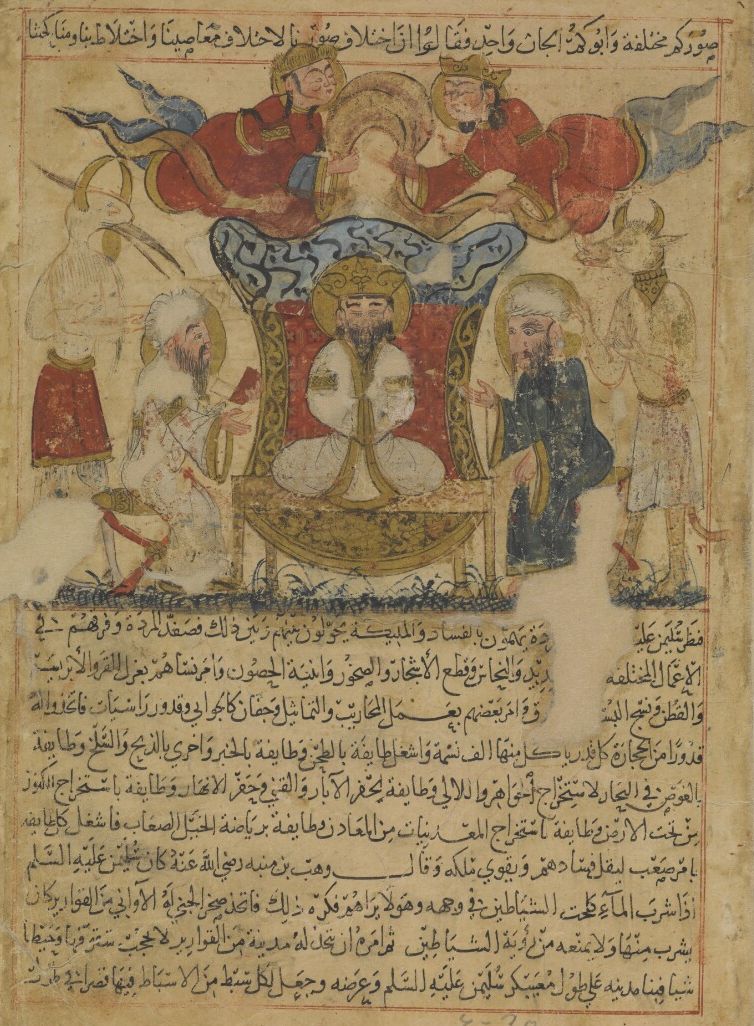 صوركم مختلفة وابوكم الجان واحد فقالوا ان اختلاف صورنا لاختلاف معاصينا واختلاطنا ومناكحتنا
فنظر سليمن عليه يهمون بالفساد والمليكة يحولون بينهم وبين ذلك فصفد المردة وفرقهم في
الاعمال المختلفة والنحاس وقطع الاشجار والصخور وابنية الحصون وامر نساهم بغزل القز والابريسم
والقطن ونسج وامر بعضهم بعمل المحاريب والتماثيل وجفان كالجوابي وقدور راسيات فاتخذوا له
قدورا من الحجارة كل قدر ياكل منها الف نسمة واشغل طايفة بالطحن وطايفة بالخبز واخري بالذبح والسلخ وطايفة
بالغوص في البحار لاستخراج الجواهر واللالي وطايفة لحفر الابار والقني وحفر الانهار وطايفة باستخراج الكنوز
من تحت الارض وطايفة باستخراج المعدنيات من المعادن وطايفة برياضة الخيل الصعاب فاشغل كل طايفة
بامر صعب ليقل فسادهم ويقوي ملكه وقال وهب بن منبه رضي الله عنه كان سليمن عليه السلم
اذا شرب الماء كلحت الشياطين في وجهه وهو لا يراهم فكره ذلك فاتخذ صخر الجني له الاواني من القوارير كان
يشرب منها ولا يمنعه من روية الشياطين ثم امره ان يتخذ له مدينة من القوارير لا يحجب سقوفها وحيطانها
شيا فبنا مدينه علي طول معسكر سليمن عليه السلم وعرضه وجعل لكل سبط من الاسباط فيها قصرا في